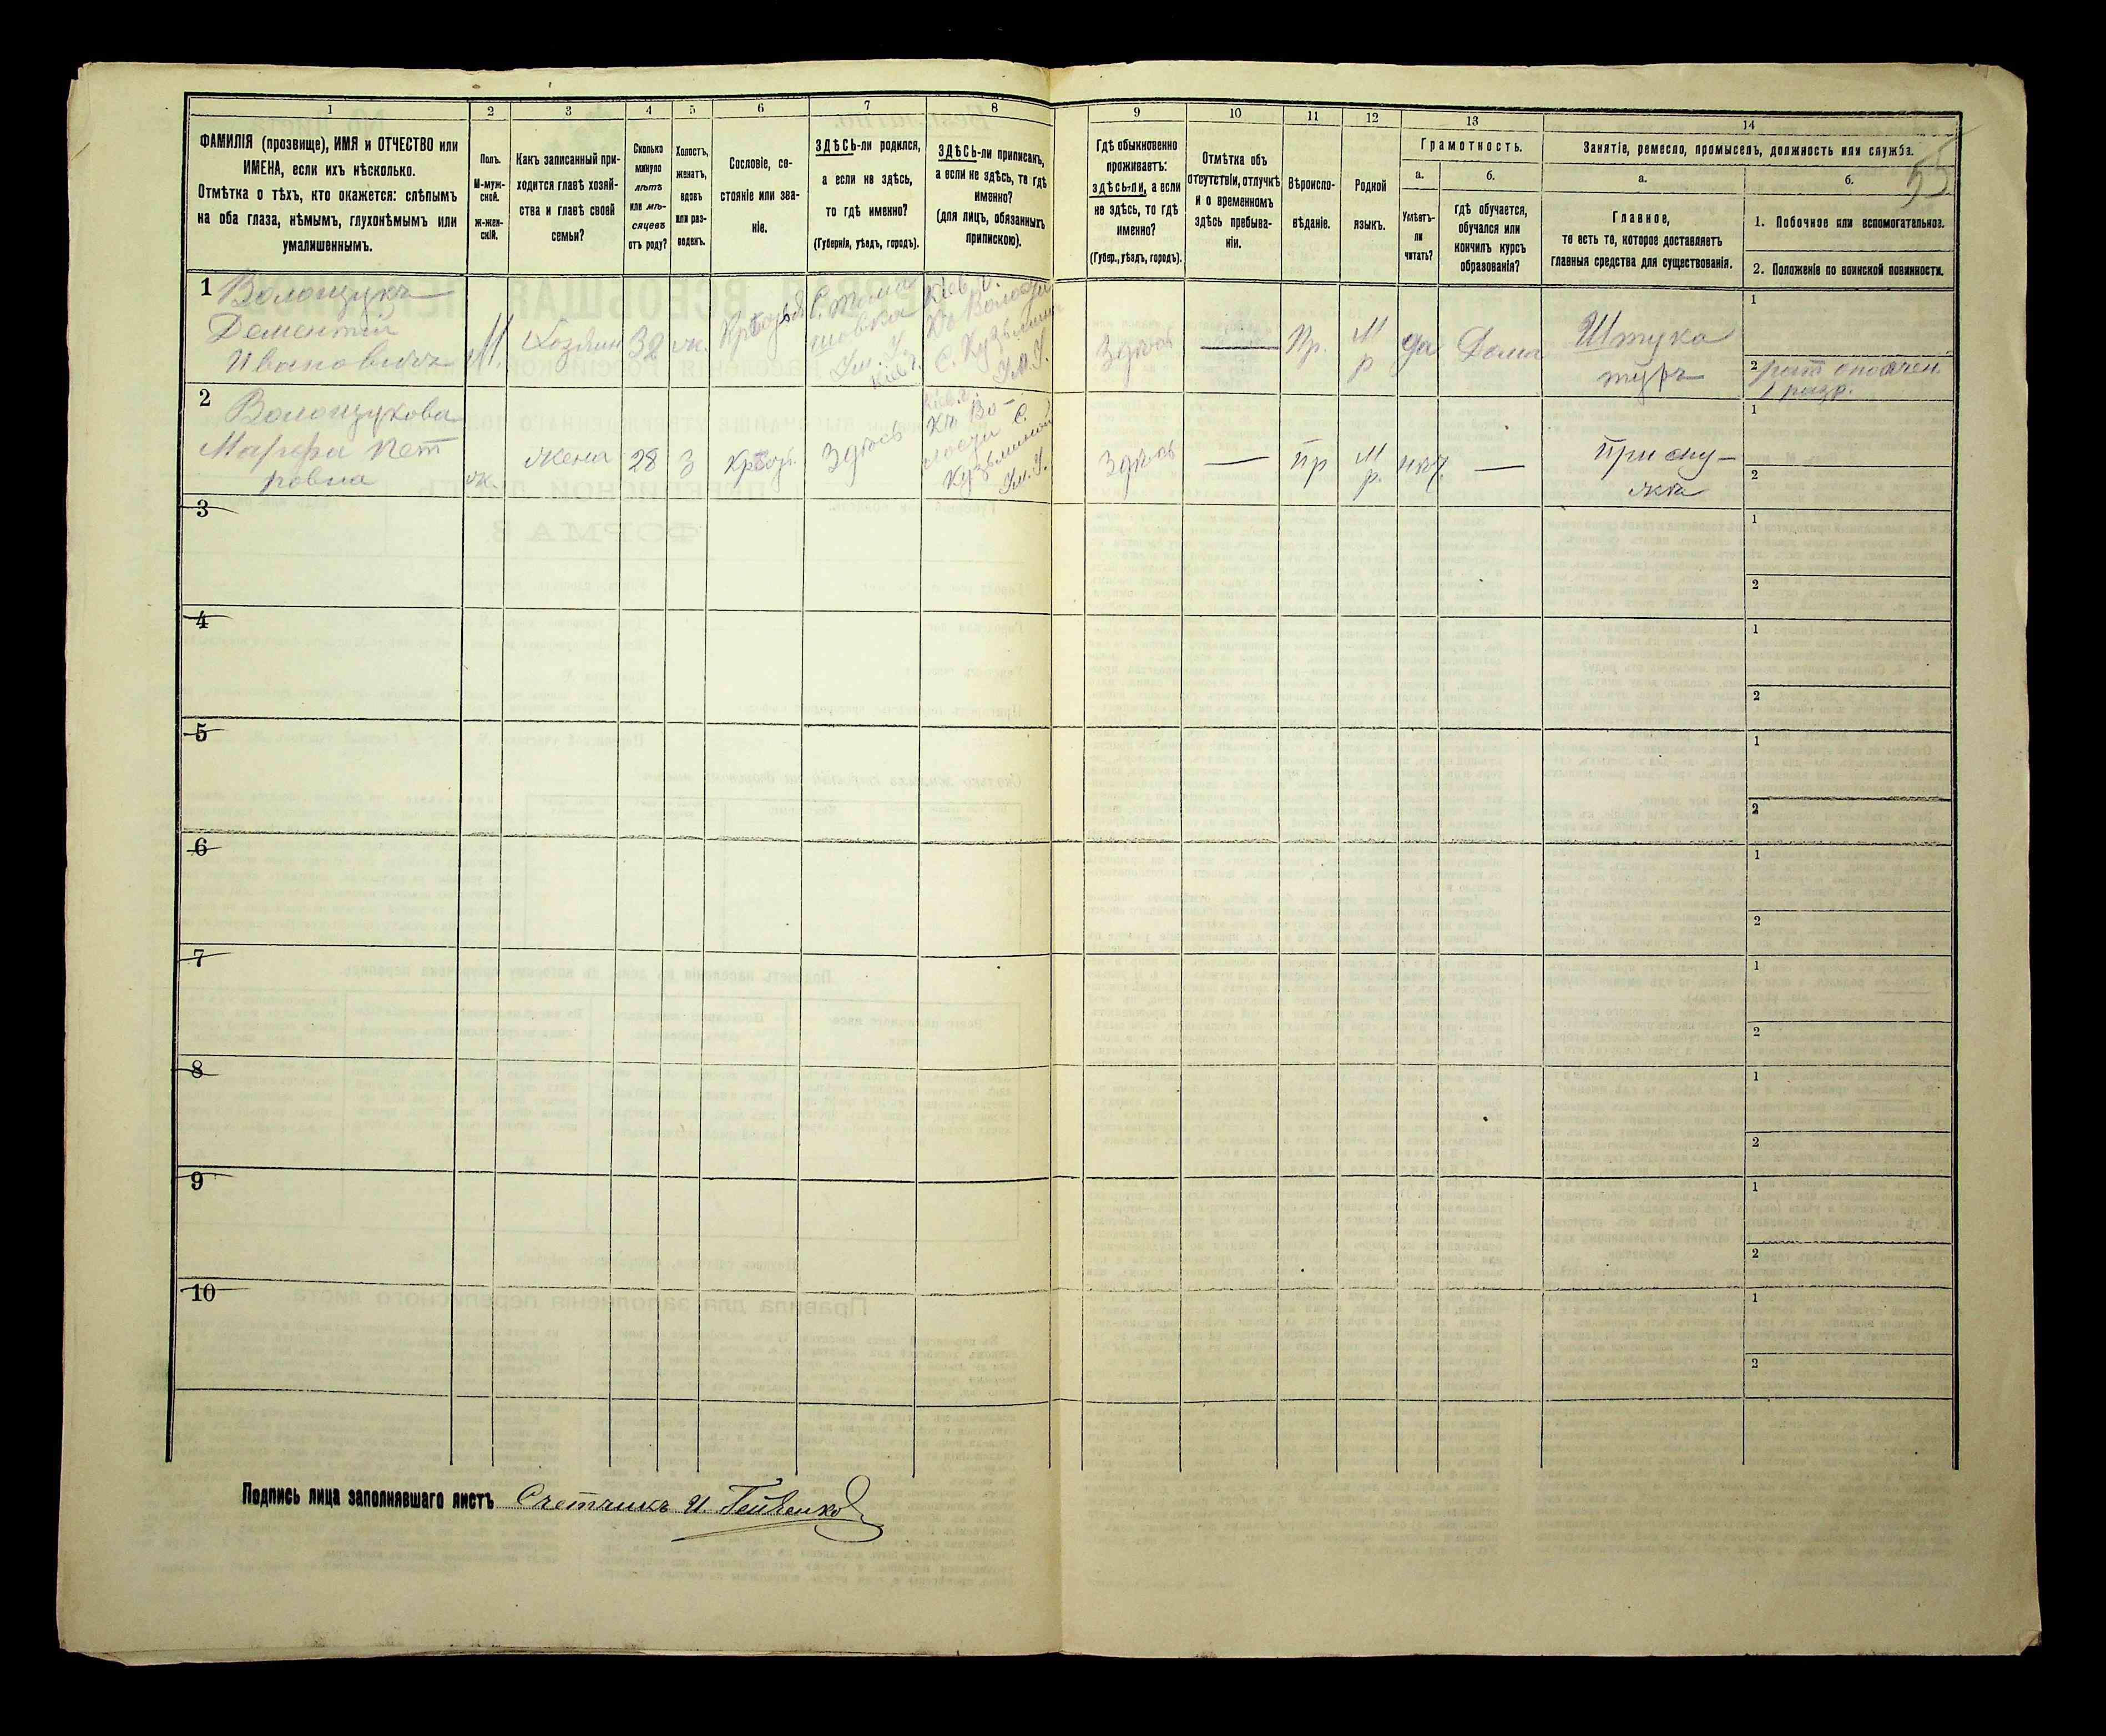 1
2
3
4
5
6
7
8
9
10
11
12
13
14
55
ФАМИЛІЯ (прозвище), ИМЯ и ОТЧЕСТВО или
ИМЕНА, если ихъ нѣсколько.
Отмѣтка о тѣхъ, кто окажется: слѣпымъ
на оба глаза, нѣмымъ, глухонѣмымъ или
умалишеннымъ.
Полъ.
М-муж-
ской.
Ж-жен-
скій.
Какъ записанный при-
ходится главѣ хозяй-
ства и главѣ своей
семьи?
Сколько
минуло
лѣтъ
или мѣ-
сяцевъ
отъ роду?
Холостъ,
женатъ,
вдовъ
или раз-
веденъ.
Сословіе, со-
стояніе или зва-
ніе.
ЗДѢСЬ-ли родился,
а если не здѣсь,
то гдѣ именно?
(Губернія, уѣздъ, городъ).
ЗДѢСЬ-ли приписанъ,
а если не здѣсь, то гдѣ
именно?
(для лицъ, обязанныхъ
припискою).
Гдѣ обыкновенно
проживаетъ:
здѣсь-ли, а если
не здѣсь, то гдѣ
именно?
(Губер., уѣздъ, городъ).
Отмѣтка объ
отсутствіи, отлучкѣ
и о временномъ
здѣсь пребыва-
ніи.
Вѣроиспо-
вѣданіе.
Родной
языкъ.
Грамотность.
а.
Умѣетъ-
ли
читать?
б.
гдѣ обучается,
обучался или
кончилъ курсъ
образованія?
Занятіе, ремесло, промыселъ, должность или служба.
а.
Главное,
то есть то, которое доставляетъ
главныя средства для существованія.
б.
1. Побочное или вспомогательное.
2. Положеніе по воинской повинности.
1
Волощукъ
Дементій
Ивановичъ
М.
Хозяин
32
ж.
С.
Ум. У.
Кіев. г.
Къ Волости
С. Кузьмин
Ум. У.
Здѣсь
—
Пр.
М
р
да
Дома
Штука
туръ
1
2 рат ополчен.
1 разр.
2
Волощукова
Марфа Пет
ровна
ж.
жена
28
З
Здѣсь
Къ Во-
лости С.
Ум. У.
Здѣсь
—
пр
М
р.
нѣт
—
При му-
жѣ
1
2
3
1
2
4
1
2
5
1
2
6
1
2
7
1
2
8
1
2
9
1
2
10
1
2
Подпись лица заполнявшаго листъ Счетчикъ И.